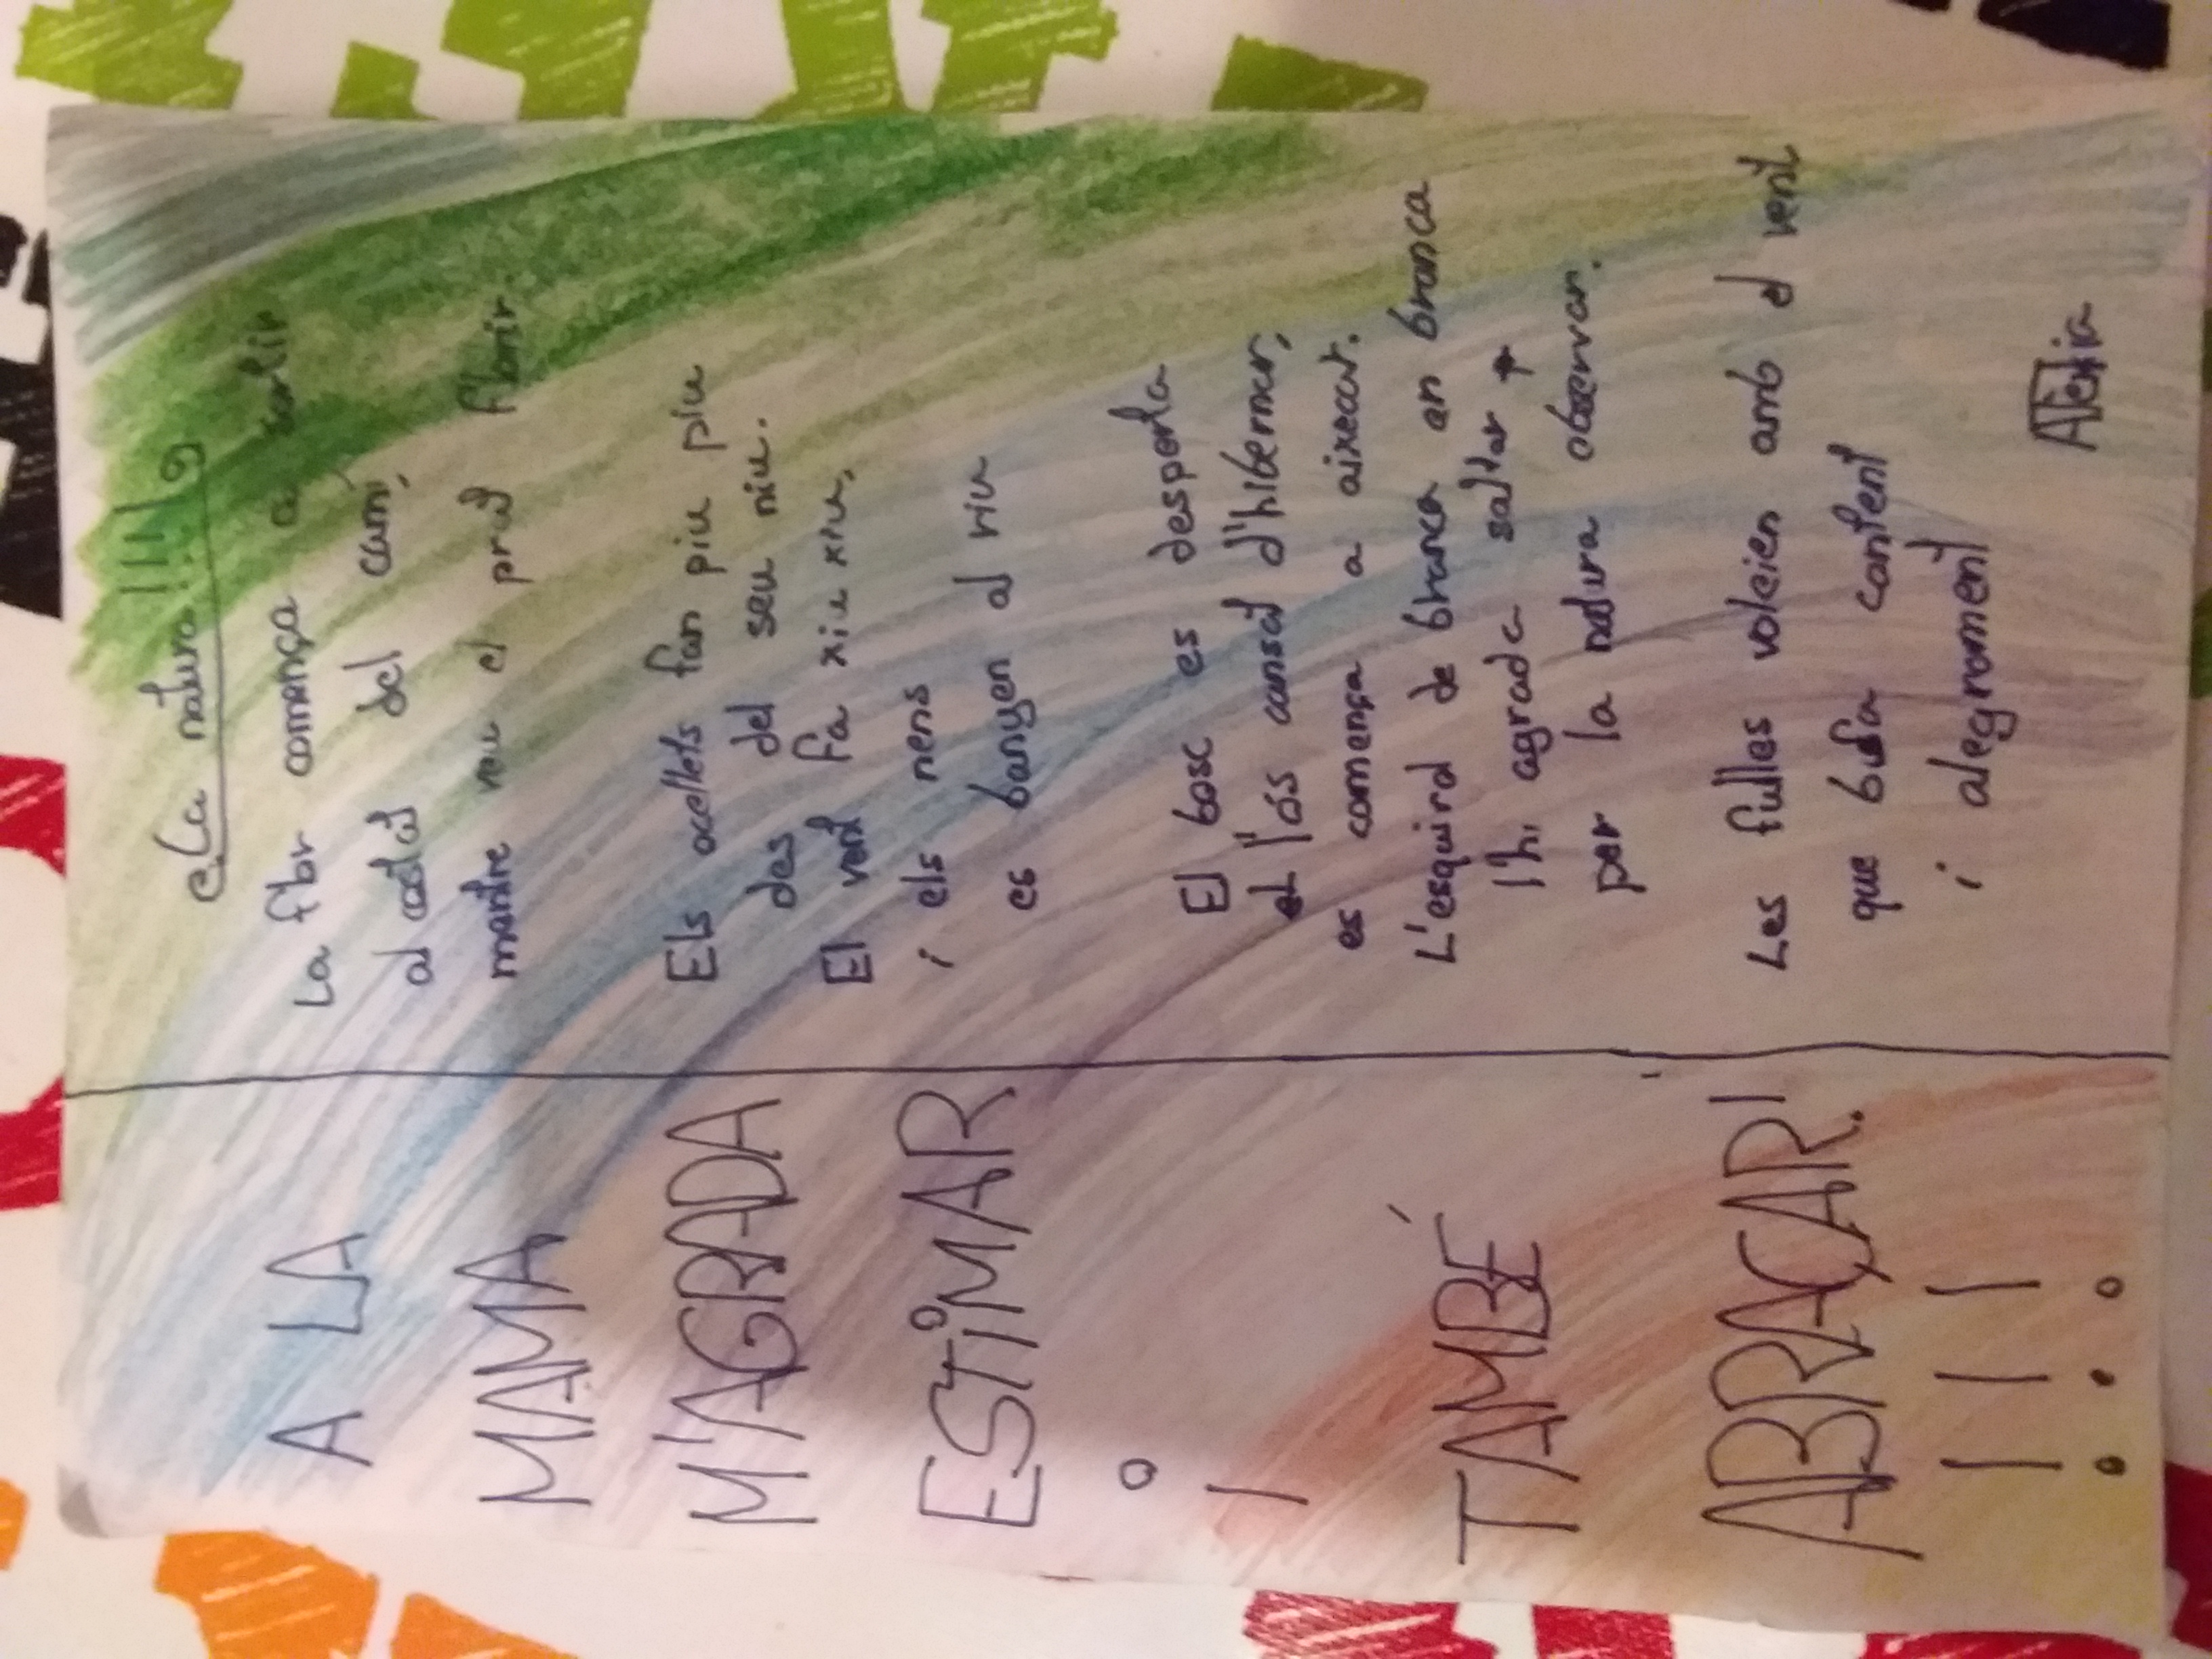 La natura!!!
La flor comença a sortir
al costat del camí,
mentre veu el prat florir.
Els ocellets fan piu piu piu
des del seu niu.
El vent fa xiu xiu,
i els nens
es banyen al riu
El bosc es desperta
l'ós cansat d'hibernar,
es comença a aixecar.
L'esquirol de branca en branca
l'hi agrada saltar
per la natura observar.
Les fulles voleien amb el vent
que bufa content
i alegrament
Alèxia
A LA
MAMA
M'AGRADA
ESTIMAR
I
TAMBÉ
ABRAÇAR!
!!!